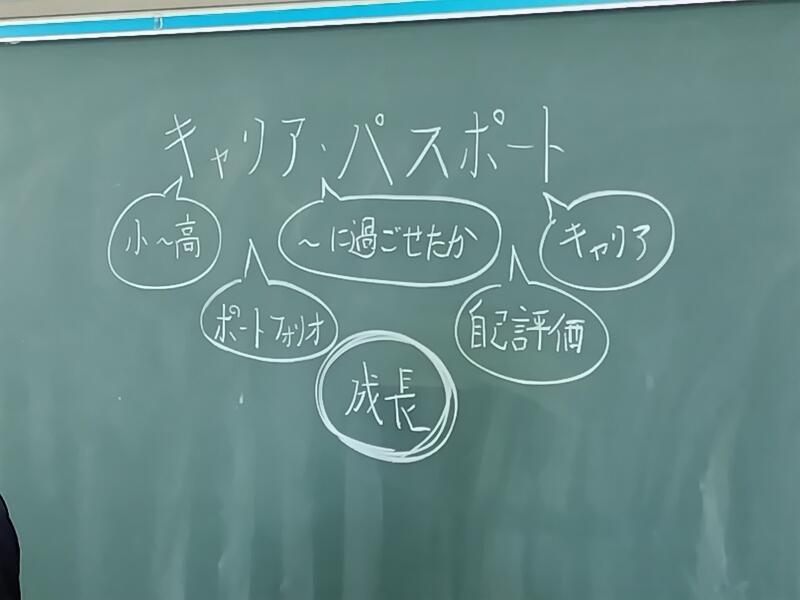 キャリア・パスポート
小～高
～に過ごせたか
キャリア
ポートフォリオ
自己評価
成長